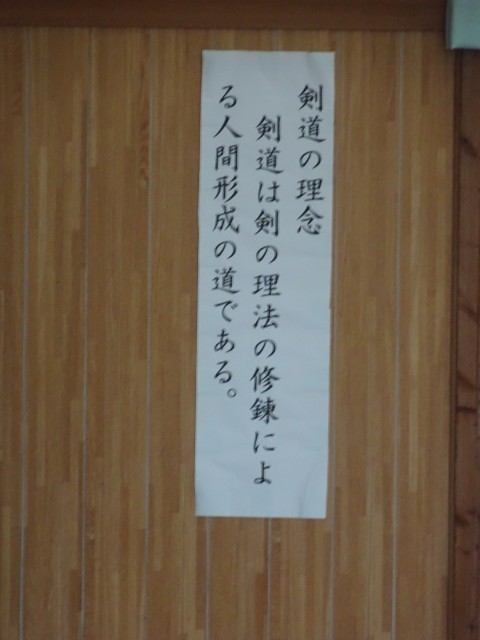 剣道の理念
剣道は剣の理法の修錬によ
る人間形成の道である。